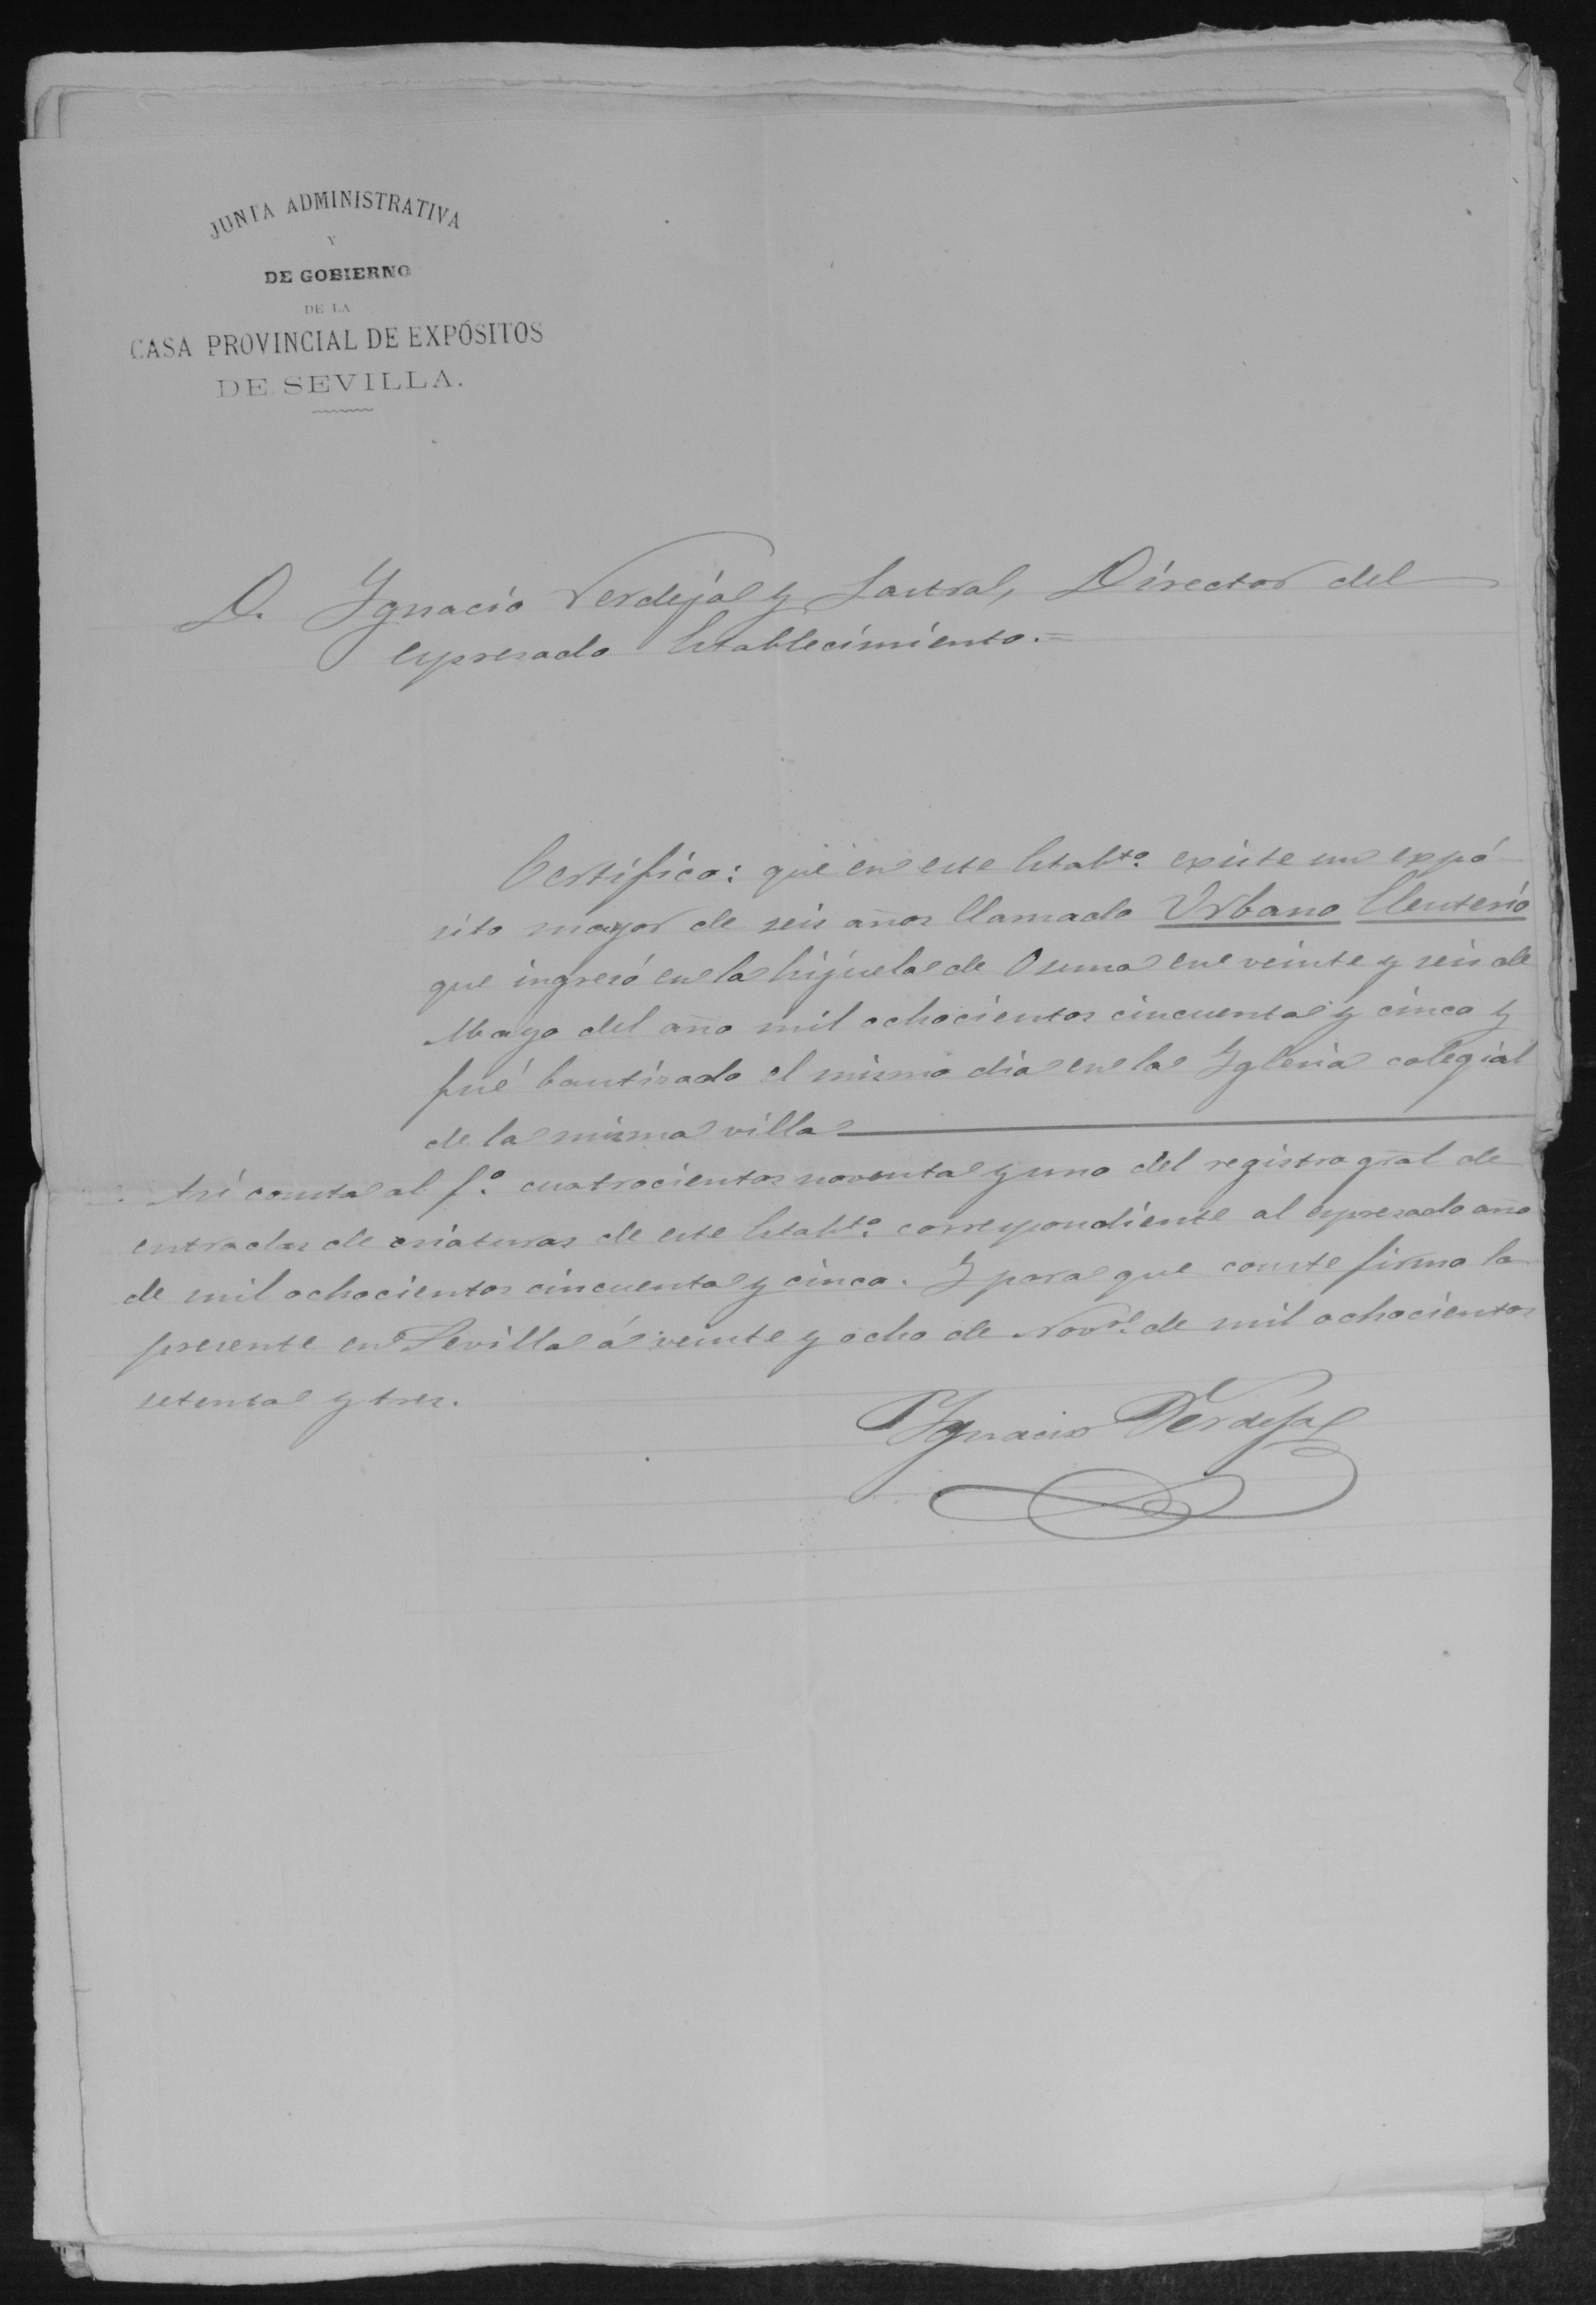 JUNTA ADMINISTRATIVA
Y
DE GOBIERNO
DE LA
CASA PROVINCIAL DE EXPÓSITOS
DE SEVILLA.
D. Ygnacio Verdeja y Lastra, Director del
espresado Establecimiento.=
Certifico: que en este Establto. existe un expó-
sito mayor de seis años llamado Urbano Eleuterio
que ingresó en la hijuela de Osuna en veinte y seis de
Mayo del año mil ochocientos cincuenta y cinco y
fué bautizado el mismo dia en la Yglesia colegial
de la misma villa
Asi consta al fo. cuatrocientos noventa y uno del registro gral de
entradas de criaturas de este Establto. correspondiente al espresado año
de mil ochocientos cincuenta y cinco. Y para que conste firmo la
presente en Sevilla á veinte y ocho de Novre. de mil ochocientos
setenta y tres.
Ygnacio Verdeja